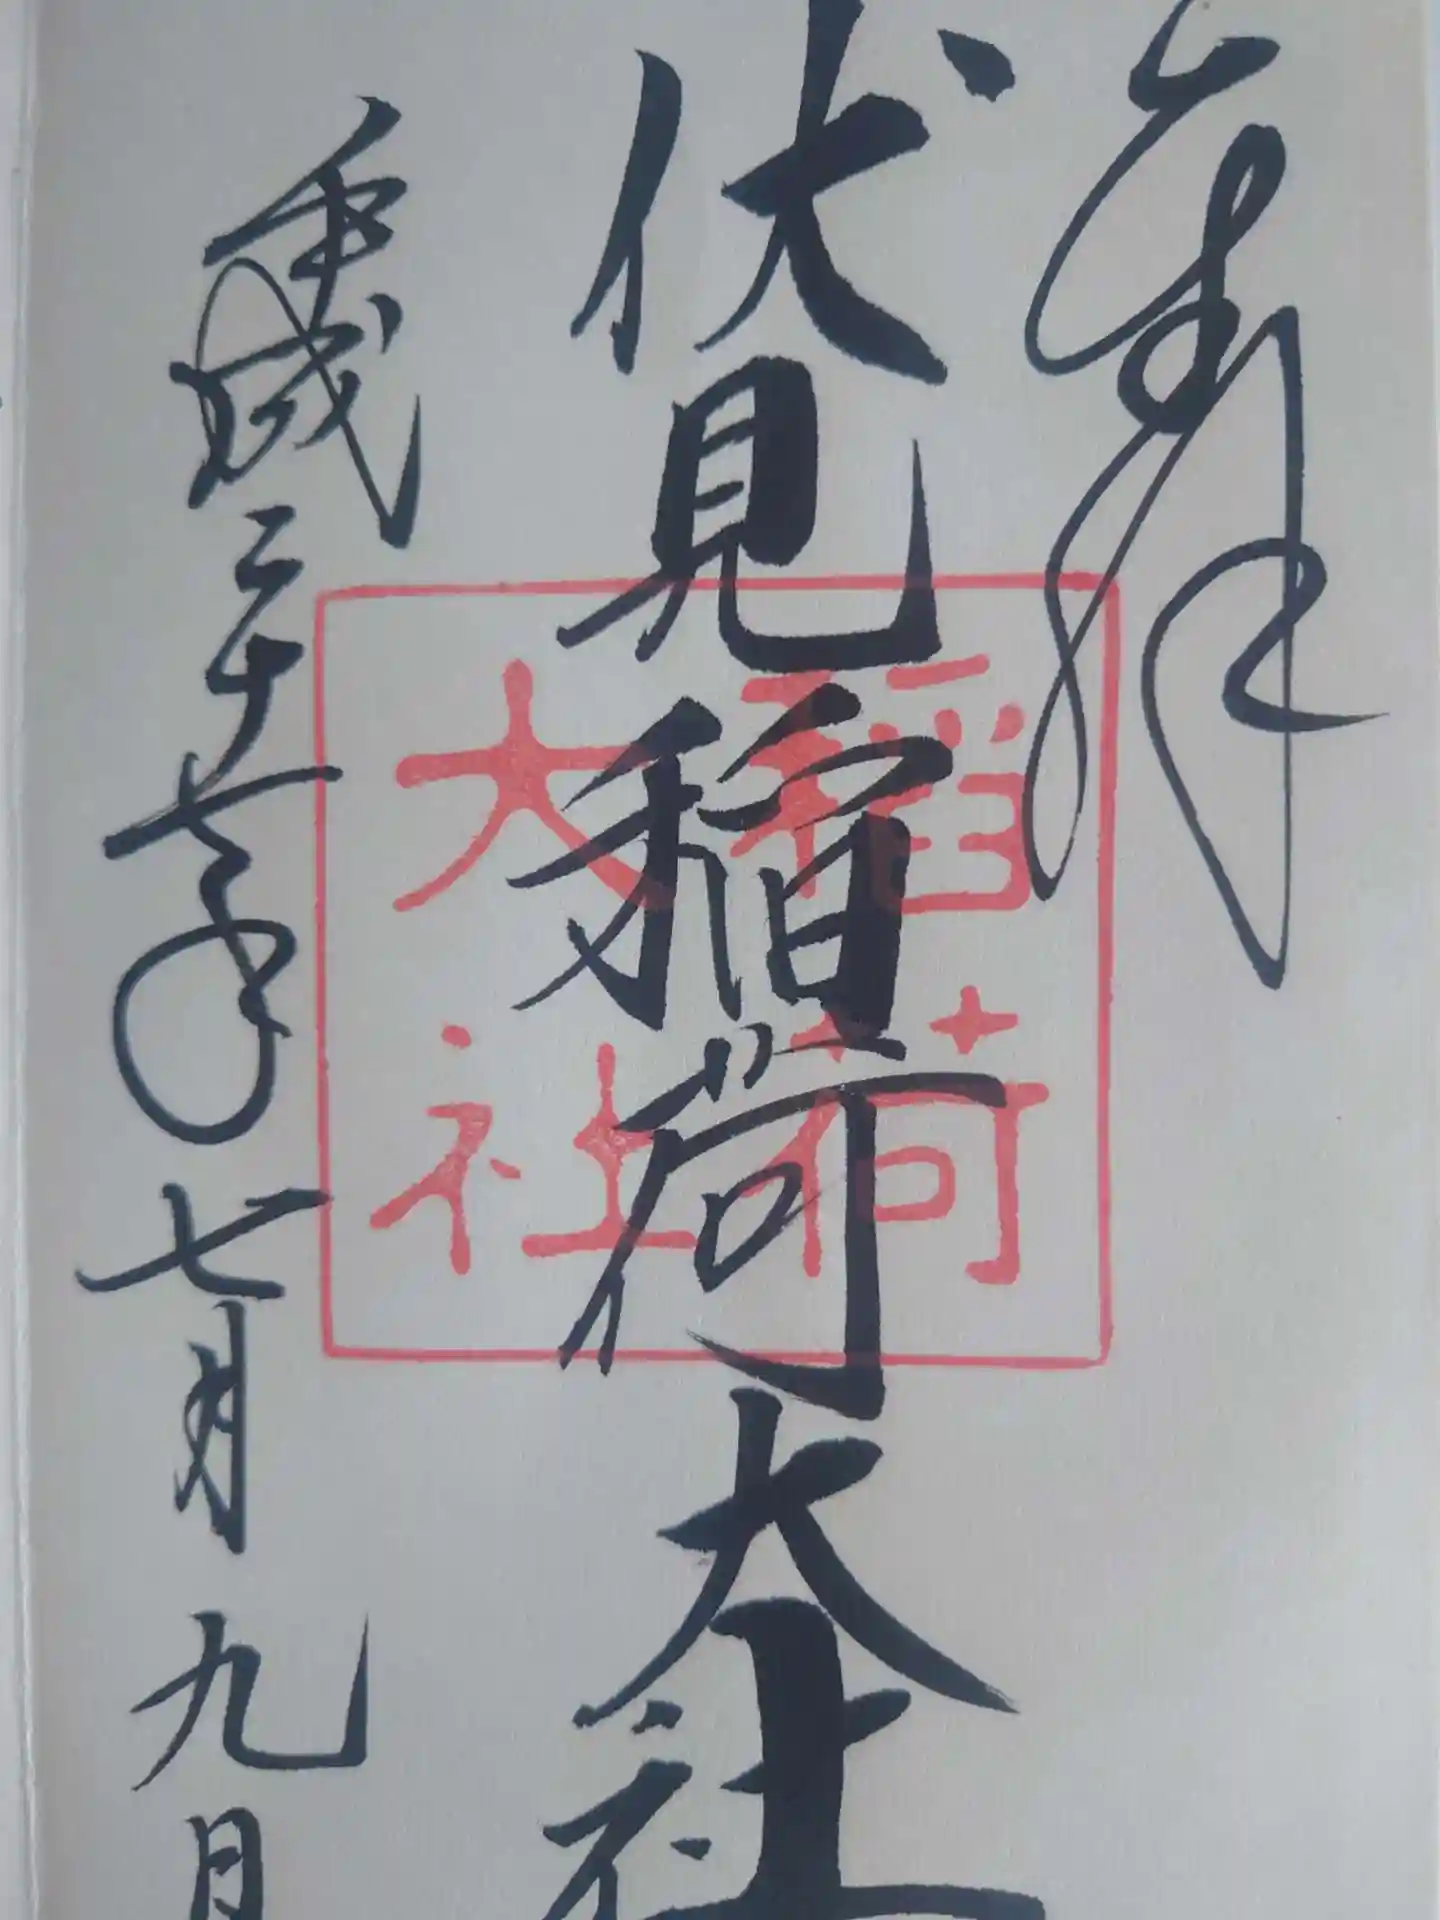 奉拝
伏見稲荷大社
平成二十七年七月九日
稲荷
大社